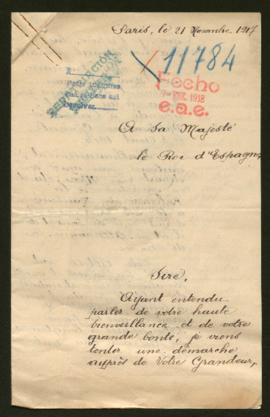 Paris, le 21 Novembre 1917
11784
Fecho
1918
e.a.e.
A Sa Majesté
le Roi d'Espagne
Sire,
Ayant entendu
parler de votre haute
bienveillance et de votre
grande bonté, je viens
tenter une démarche
auprès de Votre Grandeur,